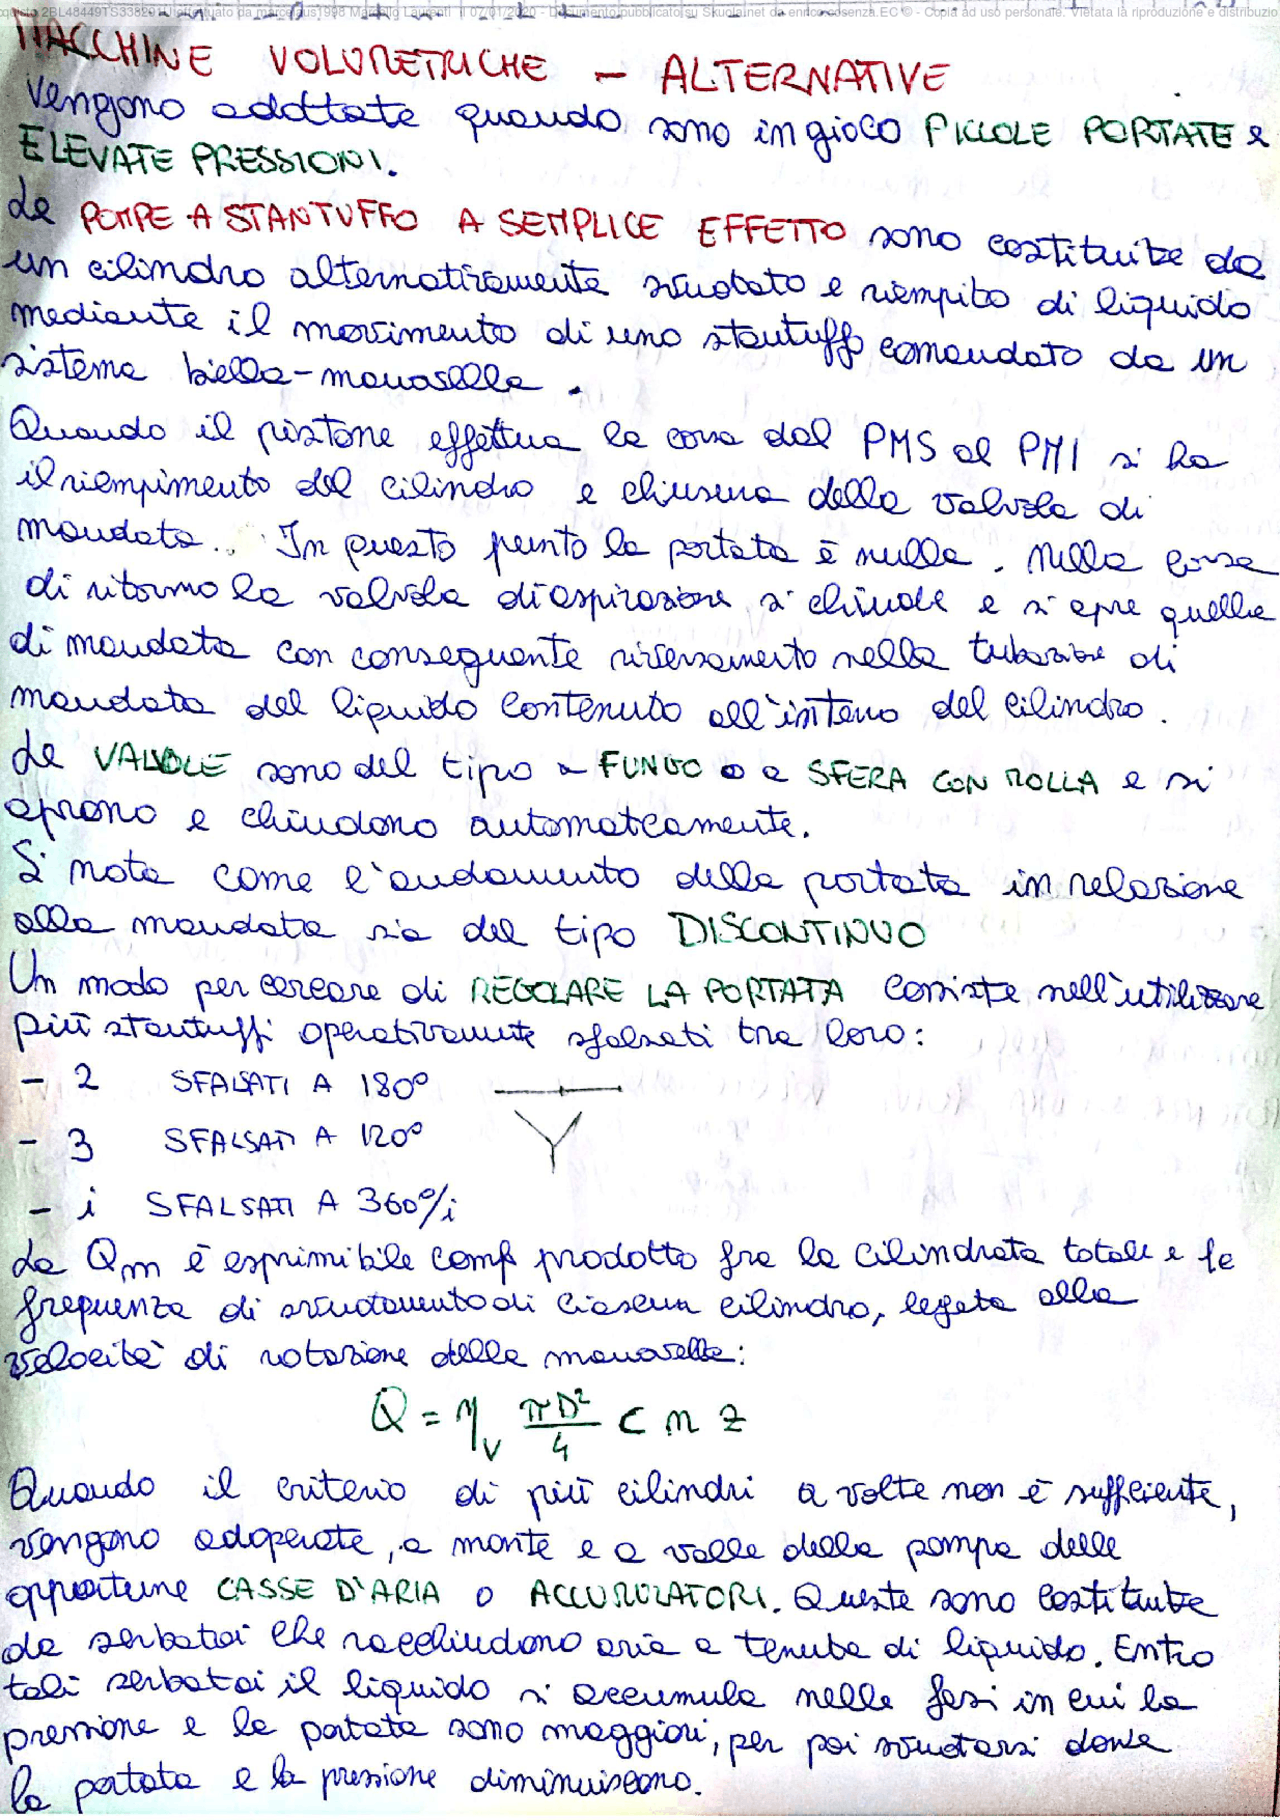 MACCHINE VOLUMETRICHE – ALTERNATIVE
vengono adottate quando sono in gioco PICCOLE PORTATE e
ELEVATE PRESSIONI.
Le POMPE A STANTUFFO A SEMPLICE EFFETTO sono costituite da
un cilindro alternativamente svuotato e riempito di liquido
mediante il movimento di uno stantuffo comandato da un
sistema biella-manovella.
Quando il pistone effettua la corsa dal PMS al PMI si ha
il riempimento del cilindro e chiusura della valvola di
mandata. In questo punto la portata è nulla. Nella corsa
di ritorno la valvola di aspirazione si chiude e si apre quella
di mandata con conseguente riversamento nella tubazione di
mandata del liquido contenuto all'interno del cilindro.
Le VALVOLE sono del tipo a FUNGO o a SFERA CON MOLLA e si
aprono e chiudono automaticamente.
Si nota come l'andamento della portata in relazione
alla mandata sia del tipo DISCONTINUO
Un modo per cercare di REGOLARE LA PORTATA consiste nell'utilizzare
più stantuffi operativamente sfalsati tra loro:
- 2 SFALSATI A 180°
- 3 SFALSATI A 120°
- i SFALSATI A 360°/i
La Qm è esprimibile come prodotto fra la cilindrata totale e la
frequenza di svuotamento di ciascun cilindro, legata alla
velocità di rotazione della manovella:
Q = ηv πD²/4 c n z
Quando il criterio di più cilindri a volte non è sufficiente,
vengono adoperate, a monte e a valle della pompa delle
opportune CASSE D'ARIA o ACCUMULATORI. Queste sono costituite
da serbatoi che racchiudono aria a tenuta di liquido. Entro
tali serbatoi il liquido si accumula nelle fasi in cui la
pressione e la portata sono maggiori, per poi svuotarsi dove
la portata e la pressione diminuiscono.